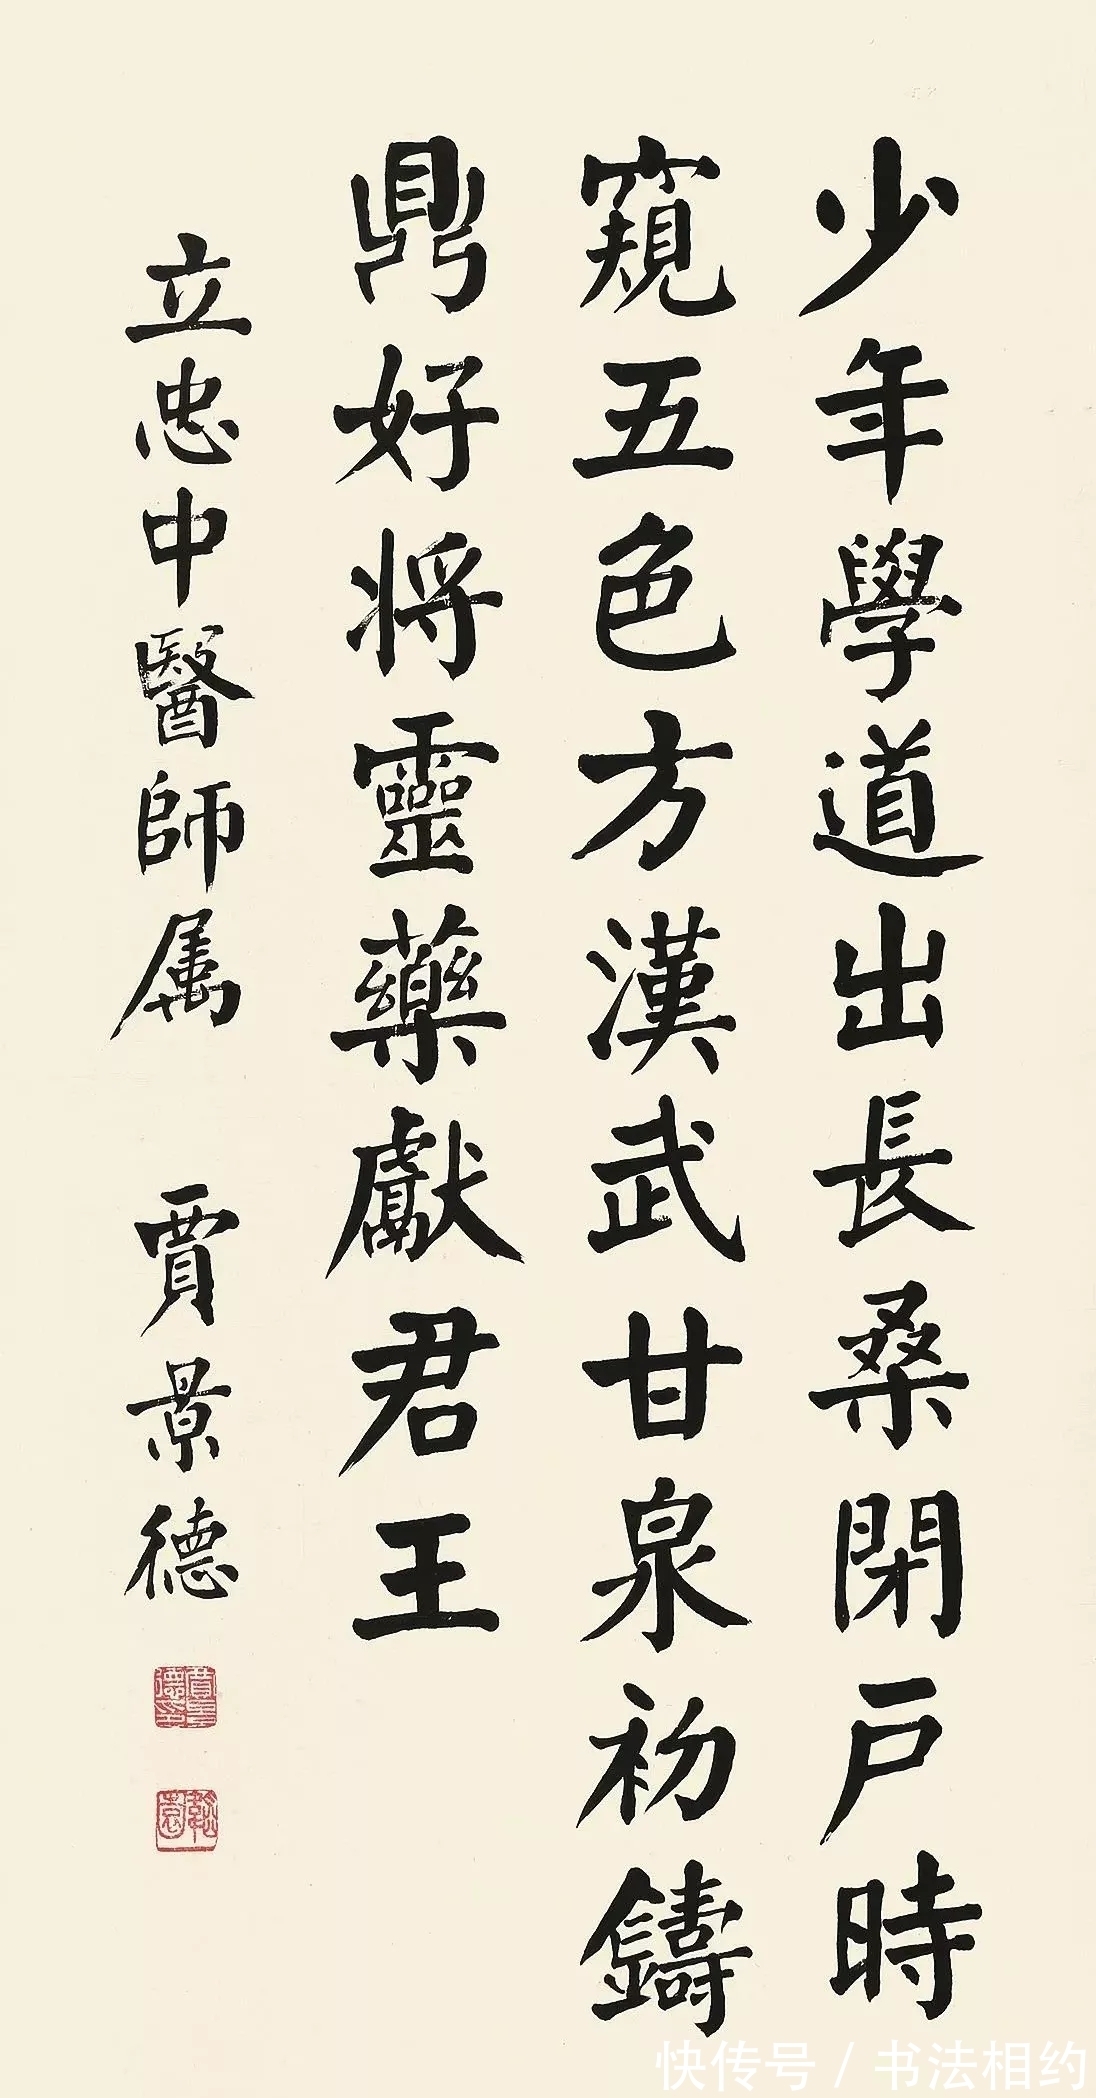 少年學道出長桑閉戸時
窺五色方漢武甘泉初鑄
鼎好将靈藥獻君王
立忠中醫師属 賈景德
快传号 / 书法相约